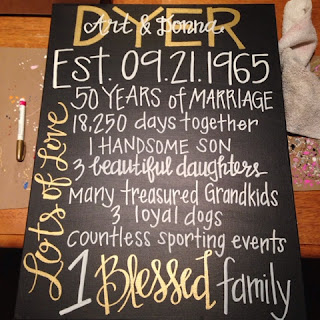 DYER
Art & Donna
Est. 09.21.1965
50 YEARS of MARRIAGE
18,250 days together
1 HANDSOME SON
3 beautiful daughters
Many treasured Grandkids
3 loyal dogs
countless sporting events
1 Blessed family
Lots of Love